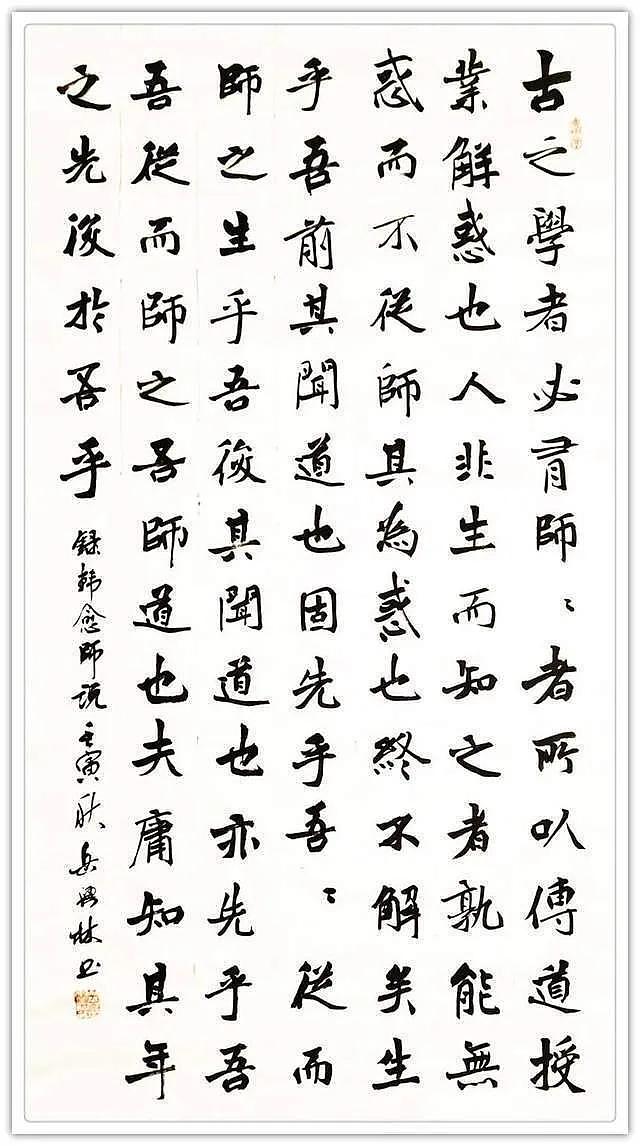 古之學者必有師〻者所以傳道授
業解惑也人非生而知之者孰能無
惑而不從師其為惑也終不解矣生
乎吾前其聞道也固先乎吾〻從而
師之生乎吾後其聞道也亦先乎吾
吾從而師之吾師道也夫庸知其年
之先後於吾乎
錄韓愈師說壬寅秋岳興林書